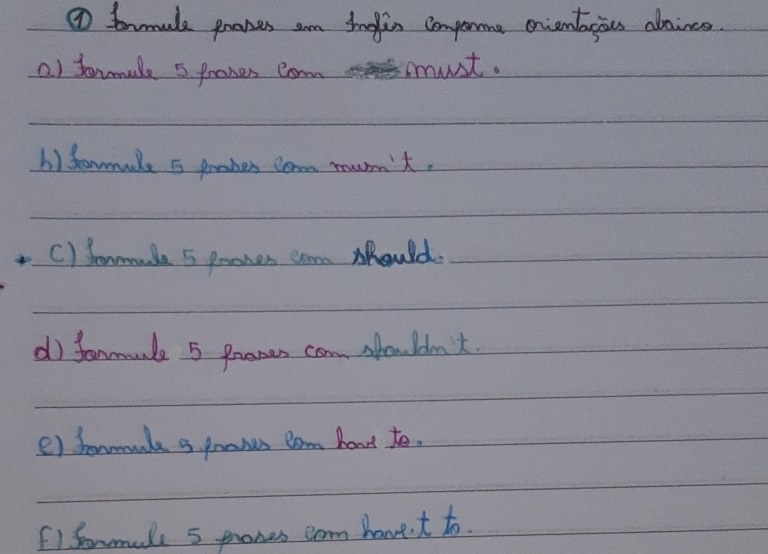 ① Formule frases em Inglês conforme orientações abaixo.
a) Formule 5 frases com must.
b) Formule 5 frases com musn't.
C) Formule 5 frases com should.
d) Formule 5 frases com shouldn't.
e) Formule 5 frases com have to.
f) Formule 5 frases com have.t to.